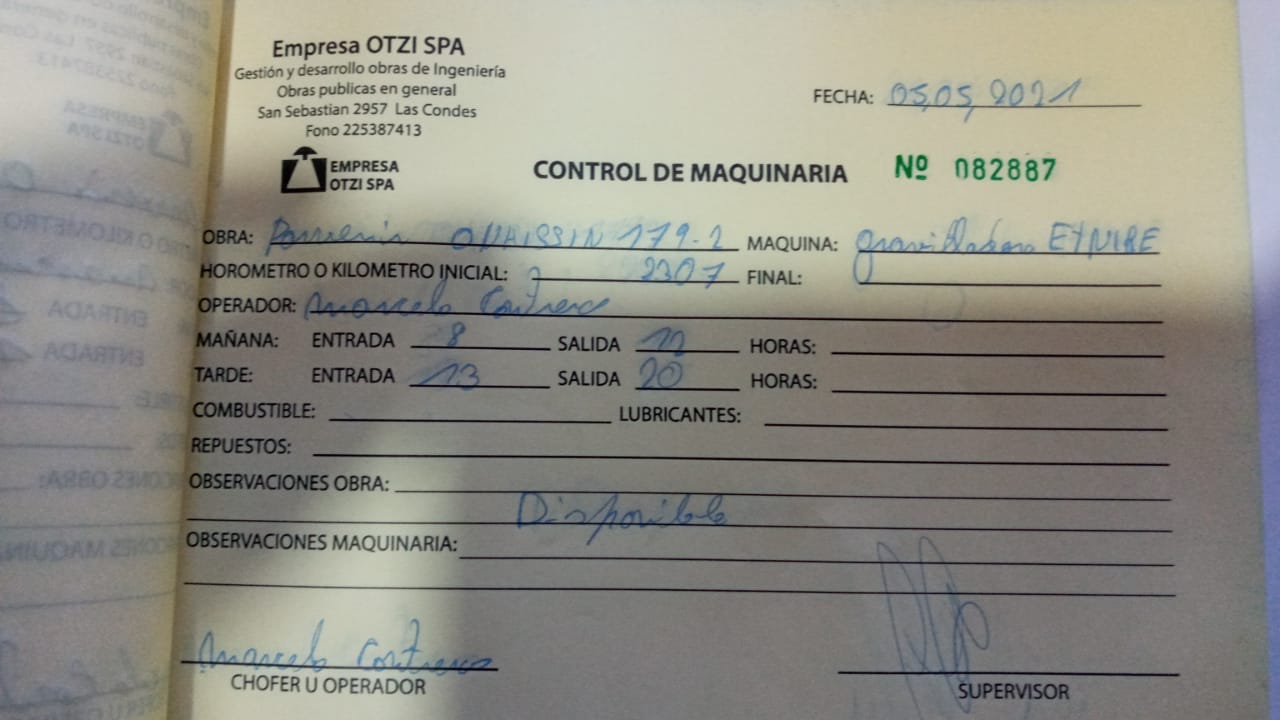 Empresa OTZI SPA
Gestión y desarrollo obras de Ingeniería
Obras publicas en general
San Sebastian 2957 Las Condes
Fono 225387413
EMPRESA
OTZI SPA
FECHA: 05,05,2021
CONTROL DE MAQUINARIA Nº 082887
OBRA: Porvenir ONAISSIN 179-2 MAQUINA: gravilladora ETNIRE
HOROMETRO O KILOMETRO INICIAL: 2307 FINAL:
OPERADOR: Marcelo Contreras
MAÑANA: ENTRADA 8 SALIDA 12 HORAS:
TARDE: ENTRADA 13 SALIDA 20 HORAS:
COMBUSTIBLE: LUBRICANTES:
REPUESTOS:
OBSERVACIONES OBRA:
Disponible
OBSERVACIONES MAQUINARIA:
Marcelo Contreras
CHOFER U OPERADOR
SUPERVISOR